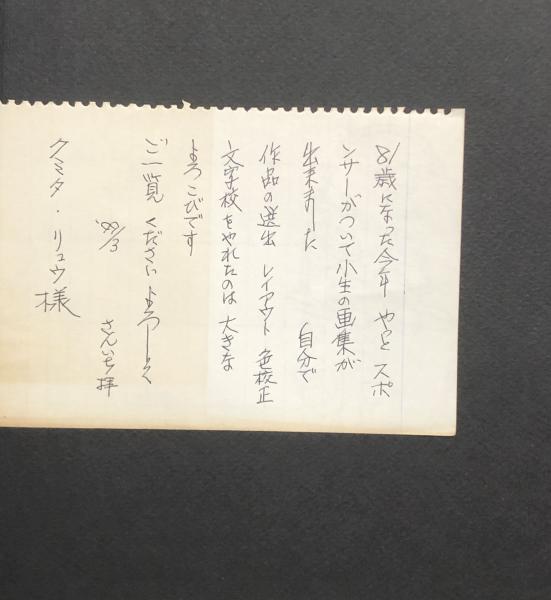 81歳になった今年 やっと スポ
ンサーがついて小生の画集が
出来ました 自分で
作品の選出 レイアウト 色校正
文字校をやれたのは 大きな
よろこびです
ご一覧 ください よろしく
'99/3 さんいち拝
クミタ・リュウ様